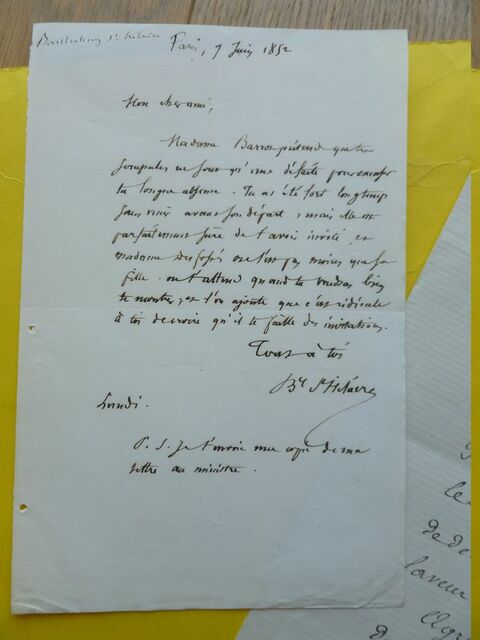 Barthélemy St Hilaire
Paris, 7 Juin 1852
Mon cher ami,
Madame Barrot prétend que tes
scrupules ne sont qu'une défaite pour excuser
ta longue absence. Tu as été fort longtemps
sans venir avant son départ; mais elle est
parfaitement sûre de t'avoir invité, et
madame Desfossés ne l'est pas moins que sa
fille. On t'attend quand tu voudras bien
te montrer; et l'on ajoute que c'est ridicule
à toi de croire qu'il te faille des invitations.
Tout à toi
By St Hilaire
Lundi.
P. S. Je t'envoie une copie de ma
lettre au ministre.
le
de de
laveur